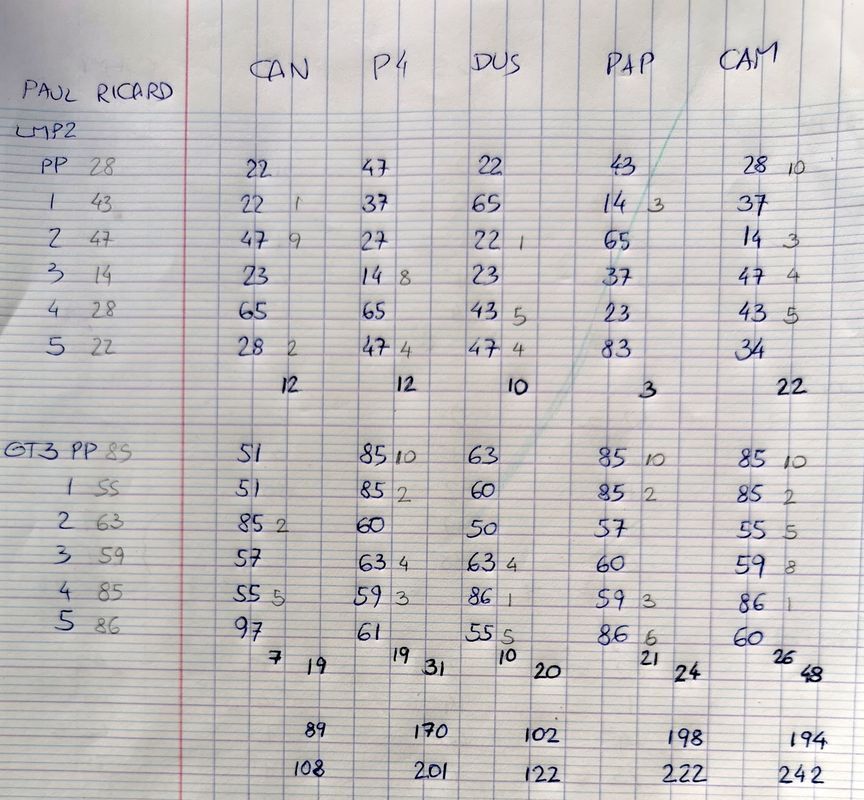 CAN P4 DUS PAP CAM
PAUL RICARD
LMP2
PP 28 22 47 22 43 28 10
1 43 22 1 37 65 14 3 37
2 47 47 9 27 22 1 65 14 3
3 14 23 14 8 23 37 47 4
4 28 65 65 43 5 23 43 5
5 22 28 2 47 4 47 4 83 34
12 12 10 3 22
GT3 PP 85 51 85 10 63 85 10 85 10
1 55 51 85 2 60 85 2 85 2
2 63 85 2 60 50 57 55 5
3 59 57 63 4 63 4 60 59 8
4 85 55 5 59 3 86 1 59 3 86 1
5 86 97 61 55 5 86 6 60
7 19 19 31 10 20 21 24 26 48
89 170 102 198 194
108 201 122 222 242